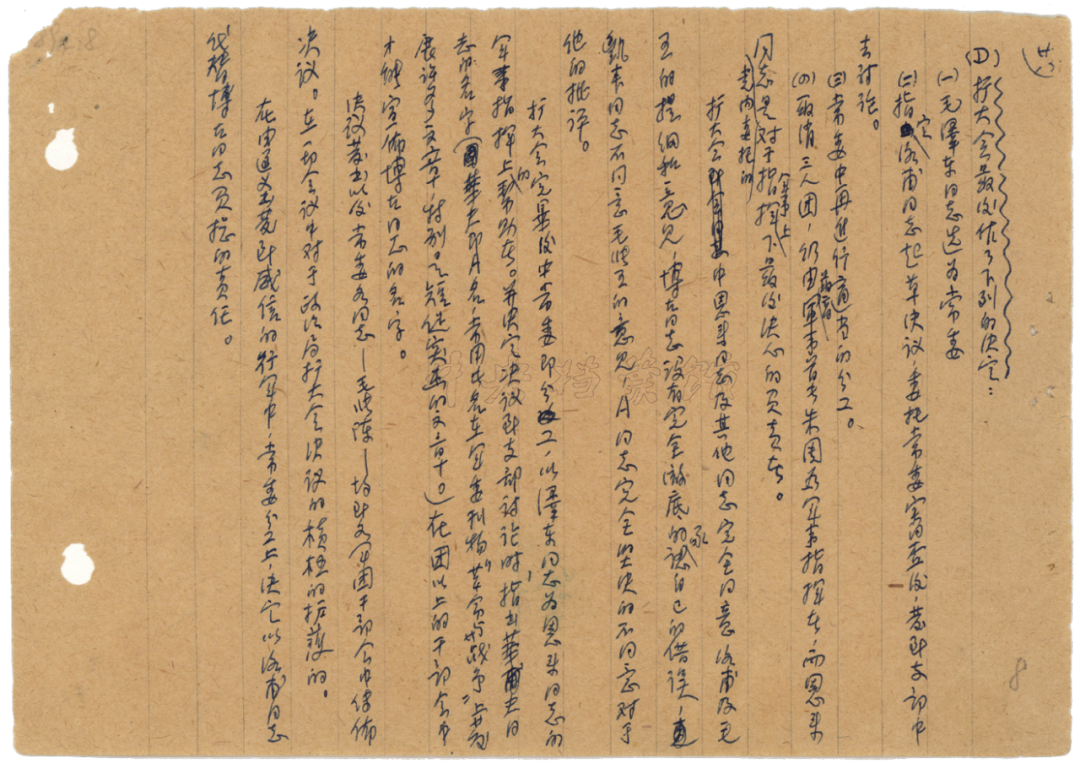 (廿)
(D)扩大会最后作了下列的决定：
(一)毛泽东同志选为常委
(二)指定洛甫同志起草决议，委托常委审查后，发到支部中
去讨论。
(三)常委中再进行适当的分工。
(四)取消三人团，仍由最高军事首长朱周为军事指挥者，而恩来
同志是党内委托的对于指挥军事上下最后决心的负责者。
扩大会中恩来同志及其他同志完全同意洛甫及毛
王的提纲和意见，博古同志没有完全彻底的承认自己的错误，
凯丰同志不同意毛张王的意见，A同志完全坚决的不同意对于
他的批评。
扩大会完毕后中常委即分工，以泽东同志为恩来同志的
军事指挥上的帮助者。并决定决议到支部讨论时，指出华夫同
志的名字（华夫即A名，常用此名在军委刊物"革命与战争"上发
展许多文章，特别是短促突击的文章。）在团以上的干部会中
才能宣布博古同志的名字。
决议发出以后常委各同志——毛张陈——均到各军团干部会中传布
决议。在一切会议中对于政治局扩大会决议的积极的拥护的。
在由遵义出发到威信的行军中，常委分工上，决定以洛甫同志
代替博古同志负总的责任。
8